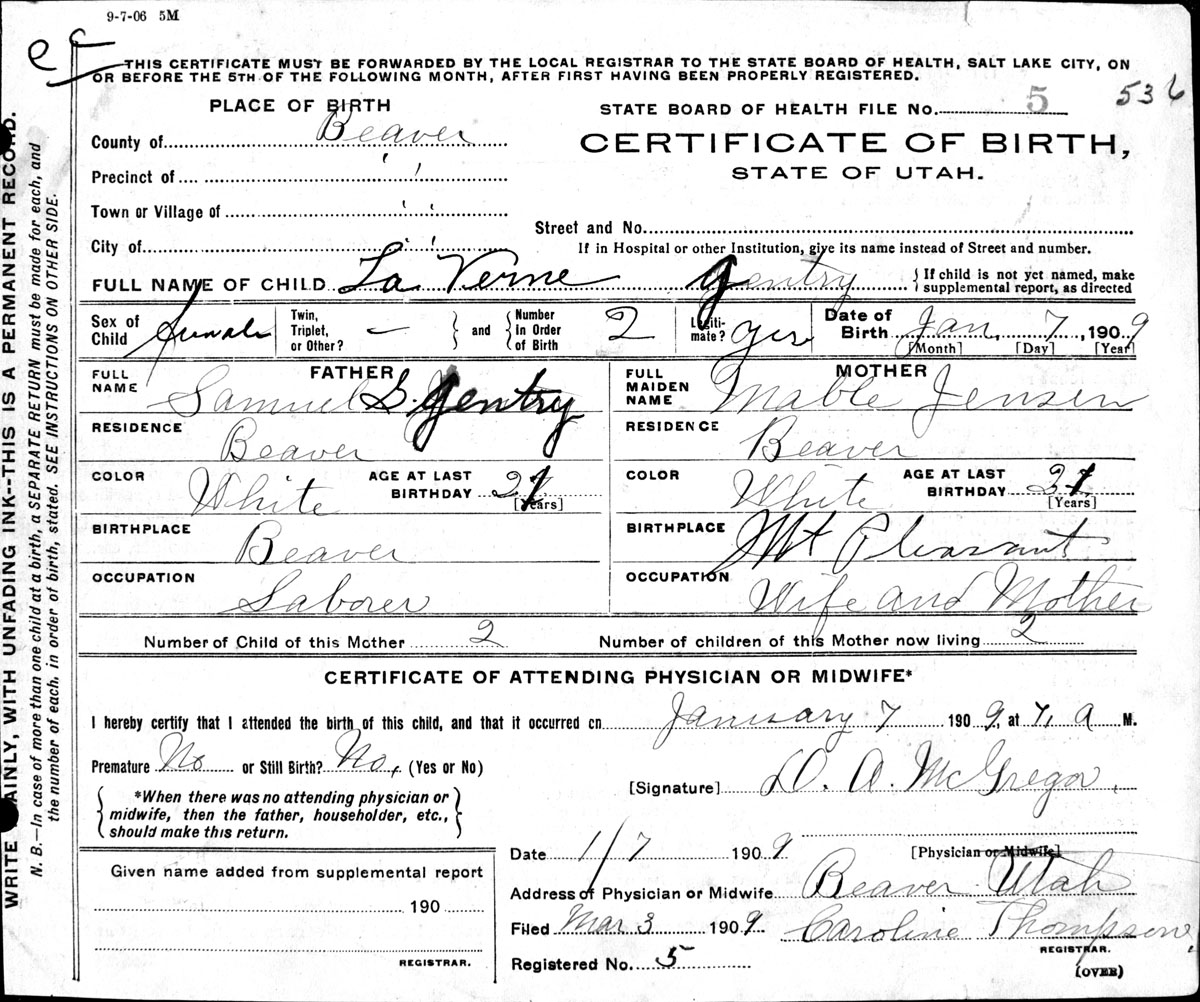 9-7-06 5M
THIS CERTIFICATE MUST BE FORWARDED BY THE LOCAL REGISTRAR TO THE STATE BOARD OF HEALTH, SALT LAKE CITY, ON
OR BEFORE THE 5TH OF THE FOLLOWING MONTH, AFTER FIRST HAVING BEEN PROPERLY REGISTERED.
PLACE OF BIRTH
STATE BOARD OF HEALTH FILE No. 5 536
County of Beaver
CERTIFICATE OF BIRTH,
STATE OF UTAH.
Precinct of " "
Town or Village of " "
Street and No.
City of " "
If in Hospital or other Institution, give its name instead of Street and number.
FULL NAME OF CHILD La Verne Gentry
If child is not yet named, make
supplemental report, as directed
Sex of Child Female
Twin, Triplet, or Other? —
and
Number In Order of Birth 2
Legiti-mate? yes
Date of Birth Jan. 7, 1909
[Month] [Day] [Year]
FATHER
FULL NAME Samuel S. Gentry
RESIDENCE Beaver
COLOR White
AGE AT LAST BIRTHDAY
[Years]
BIRTHPLACE Beaver
OCCUPATION Laborer
MOTHER
FULL MAIDEN NAME Mable Jensen
RESIDENCE Beaver
COLOR White
AGE AT LAST BIRTHDAY
[Years]
BIRTHPLACE Mt Pleasant
OCCUPATION Wife and Mother
Number of Child of this Mother 2
Number of children of this Mother now living 2
CERTIFICATE OF ATTENDING PHYSICIAN OR MIDWIFE*
I hereby certify that I attended the birth of this child, and that it occurred on January 7 1909, at 7, a M.
Premature No or Still Birth? No, (Yes or No)
[Signature] D. A. McGregor,
*When there was no attending physician or
midwife, then the father, householder, etc.,
should make this return.
Date 1/7 1909
[Physician or Midwife]
Address of Physician or Midwife Beaver Utah
Filed Mar 3 1909. Caroline Thompson,
REGISTRAR.
Registered No. 5
(OVER)
Given name added from supplemental report
190
REGISTRAR.
WRITE PLAINLY, WITH UNFADING INK--THIS IS A PERMANENT RECORD.
N. B.—In case of more than one child at a birth, a SEPARATE RETURN must be made for each, and
the number of each, in order of birth, stated. SEE INSTRUCTIONS ON OTHER SIDE.